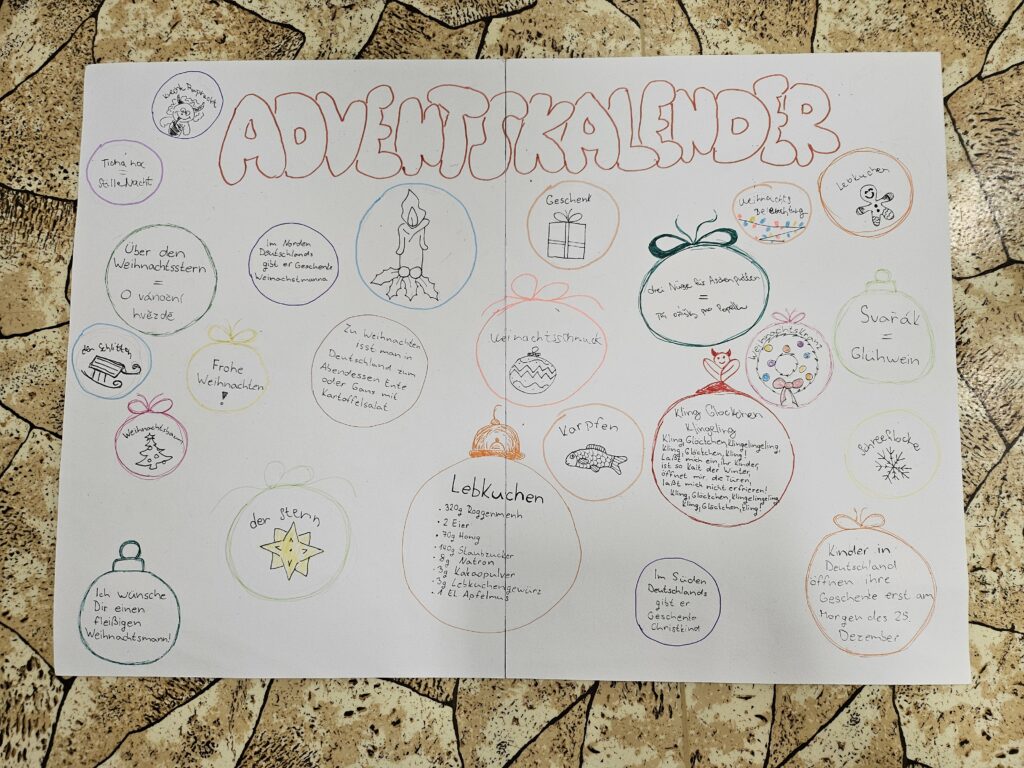 ADVENTSKALENDER
Knecht Ruprecht
Ticha noc
=
Stille Nacht
Über den
Weihnachtsstern
=
O vánoční
hvězdě
Im Norden
Deutschlands
gibt er Geschenke
Weihnachstmann
Geschenk
Weihnachts
beleuchtung
Lebkuchen
drei Nüsse für Aschenputtel
=
Tři oříšky pro Popelku
Svařák
=
Glühwein
der Schlitten
Frohe
Weihnachten
!
Zu Weihnachten
isst man in
Deutschland zum
Abendessen Ente
oder Gans mit
Kartoffelsalat
Weihnachtsschmuck
Weihnachtskranz
Weihnachtsbaum
Karpfen
Kling Glöckchen
Klingeling
Kling, Glöckchen, Klingelingeling,
Kling, Glöckchen, Kling!
Laßt mich ein, ihr Kinder,
ist so Kalt der Winter,
öffnet mir die Türen,
laßt mich nicht erfrieren!
Kling, Glöckchen, Klingelingeling,
Kling, Glöckchen, Kling!
Schneeflocke
der Stern
Lebkuchen
• 320g Roggenmehl
• 2 Eier
• 70g Honig
• 140g Staubzucker
• 8g Natron
• 3g Kakaopulver
• 3g Lebkuchengewürz
• 1 EL Apfelmus
Ich wünsche
Dir einen
fleißigen
Weihnachtsmann!
Im Süden
Deutschlands
gibt er
Geschenke
Christkind
Kinder in
Deutschland
öffnen ihre
Geschenke erst am
Morgen des 25.
Dezember